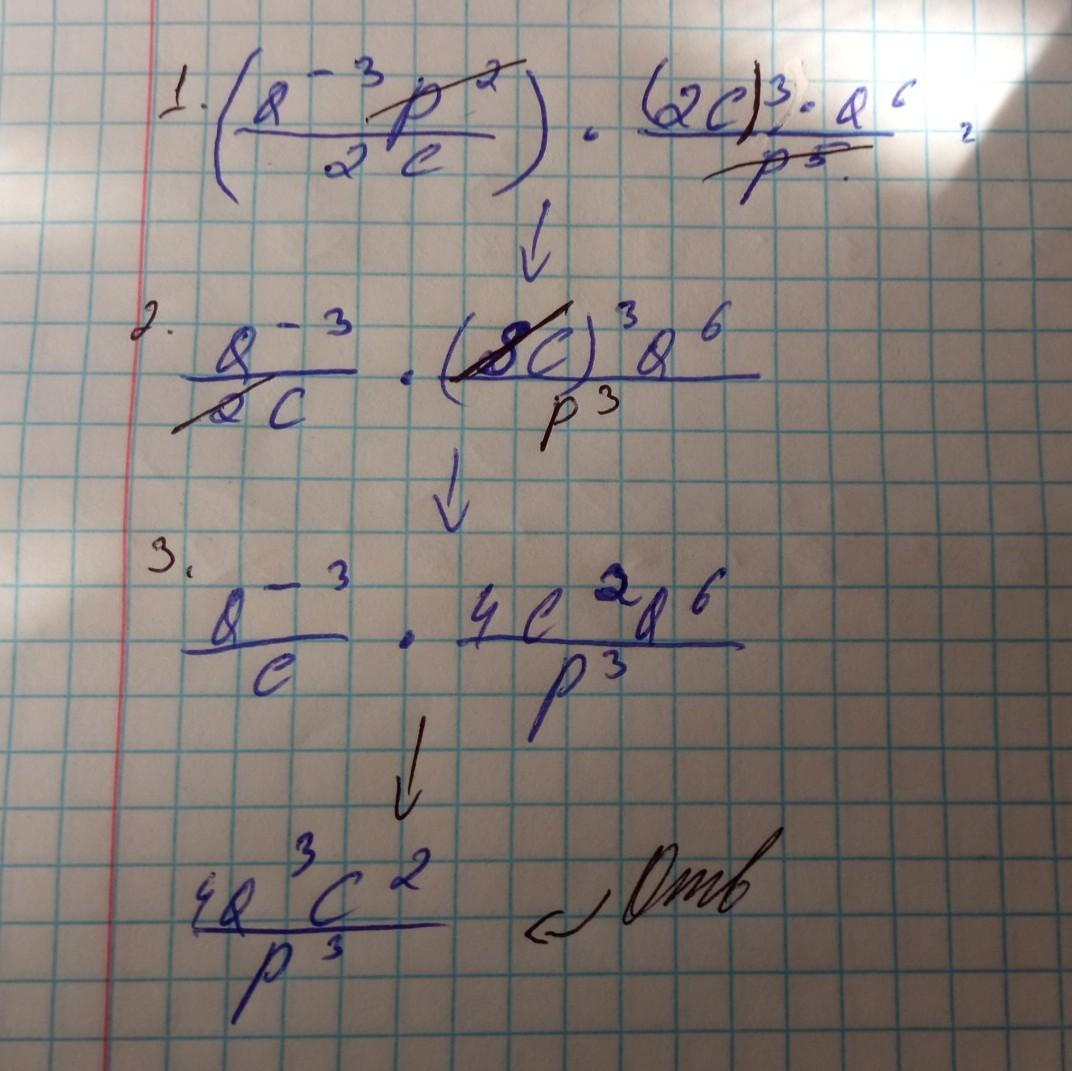 1. (a⁻³p²/2c) · (2c)³·a⁶/p⁵ =
2. a⁻³/2c · (8c)³a⁶/p³
3. a⁻³/c · 4c²a⁶/p³
4a³c²/p³ ← Отв